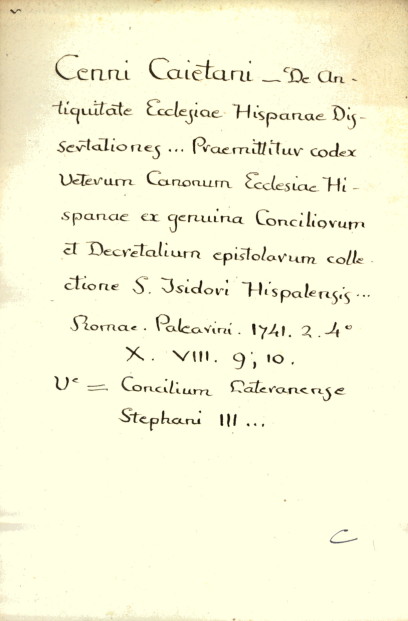 Cenni Caietani — De An-
tiquitate Ecclesiae Hispanae Dis-
sertationes... Praemittitur codex
Veterum Canonum Ecclesiae Hi-
spanae ex genuina Conciliorum
et Decretalium epistolarum colle
ctione S. Isidori Hispalensis...
Romae. Palearini. 1741. 2. 4º
X. VIII. 9; 10.
Ve = Concilium Lateranense
Stephani III...
C